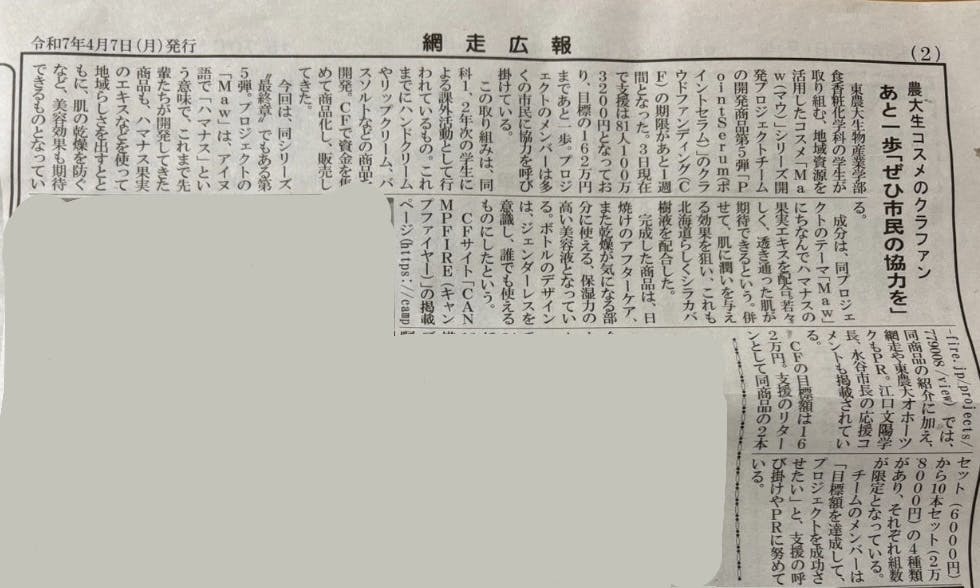 令和7年4月7日(月)発行
網走広報
(2)
農大生コスメのクラファン
あと一歩「ぜひ市民の協力を」
東農大生物産業学部
食香粧化学科の学生が
取り組む、地域資源を
活用したコスメ「Ma
w(マウ)シリーズ開
発プロジェクトチーム
の開発商品第5弾「P
ointSerumポ
イントセラム」のクラ
ウドファンディング(C
F)の期限があと1週
間となった。3日現在
で支援は81人100万
3200円となってお
り、目標の162万円
まであと一歩。プロジ
ェクトのメンバーは多
くの市民に協力を呼び
掛けている。
この取り組みは、同
科1、2年次の学生に
よる課外活動として行
われているもの。これ
までにハンドクリーム
やリップクリーム、バ
スソルトなどの商品を
開発。CFで資金を集
めて商品化し、販売し
てきた。
今回は、同シリーズ
〝最終章〟でもある第
5弾。プロジェクトの
「Maw」は、アイヌ
語で「ハマナス」とい
う意味で、これまで先
輩たちが開発してきた
商品も、ハマナス果実
のエキスなどを使って
地域らしさを出すとと
もに、肌の乾燥を防ぐ
など、美容効果も期待
できるものとなってい
る。
成分は、同プロジェ
クトのテーマ「Maw」
にちなんでハマナスの
果実エキスを配合。若々
しく、透き通った肌が
期待できるという。併
せて、肌に潤いを与え
る効果を狙い、これも
北海道らしくシラカバ
樹液を配合した。
完成した商品は、日
焼けのアフターケア、
また乾燥が気になる部
分に使える、保湿力の
高い美容液となってい
る。ボトルのデザイン
は、ジェンダーレスを
意識し、誰でも使える
ものにしたという。
CFサイト「CAN
MPFIRE(キャン
プファイヤー)」の掲載
ページ(https://camp
-fire.jp/projects/
779008/view)では、
同商品の紹介に加え、
網走や東農大オホーツ
クもPR。江口文陽学
長、水谷市長の応援コ
メントも掲載されてい
る。
CFの目標額は16
2万円。支援のリター
ンとして同商品の2本
セット(6000円)
から10本セット(2万
8000円)の4種類
があり、それぞれ組数
が限定となっている。
チームのメンバーは
「目標額を達成して、
プロジェクトを成功さ
せたい」と、支援の呼
び掛けやPRに努めて
いる。